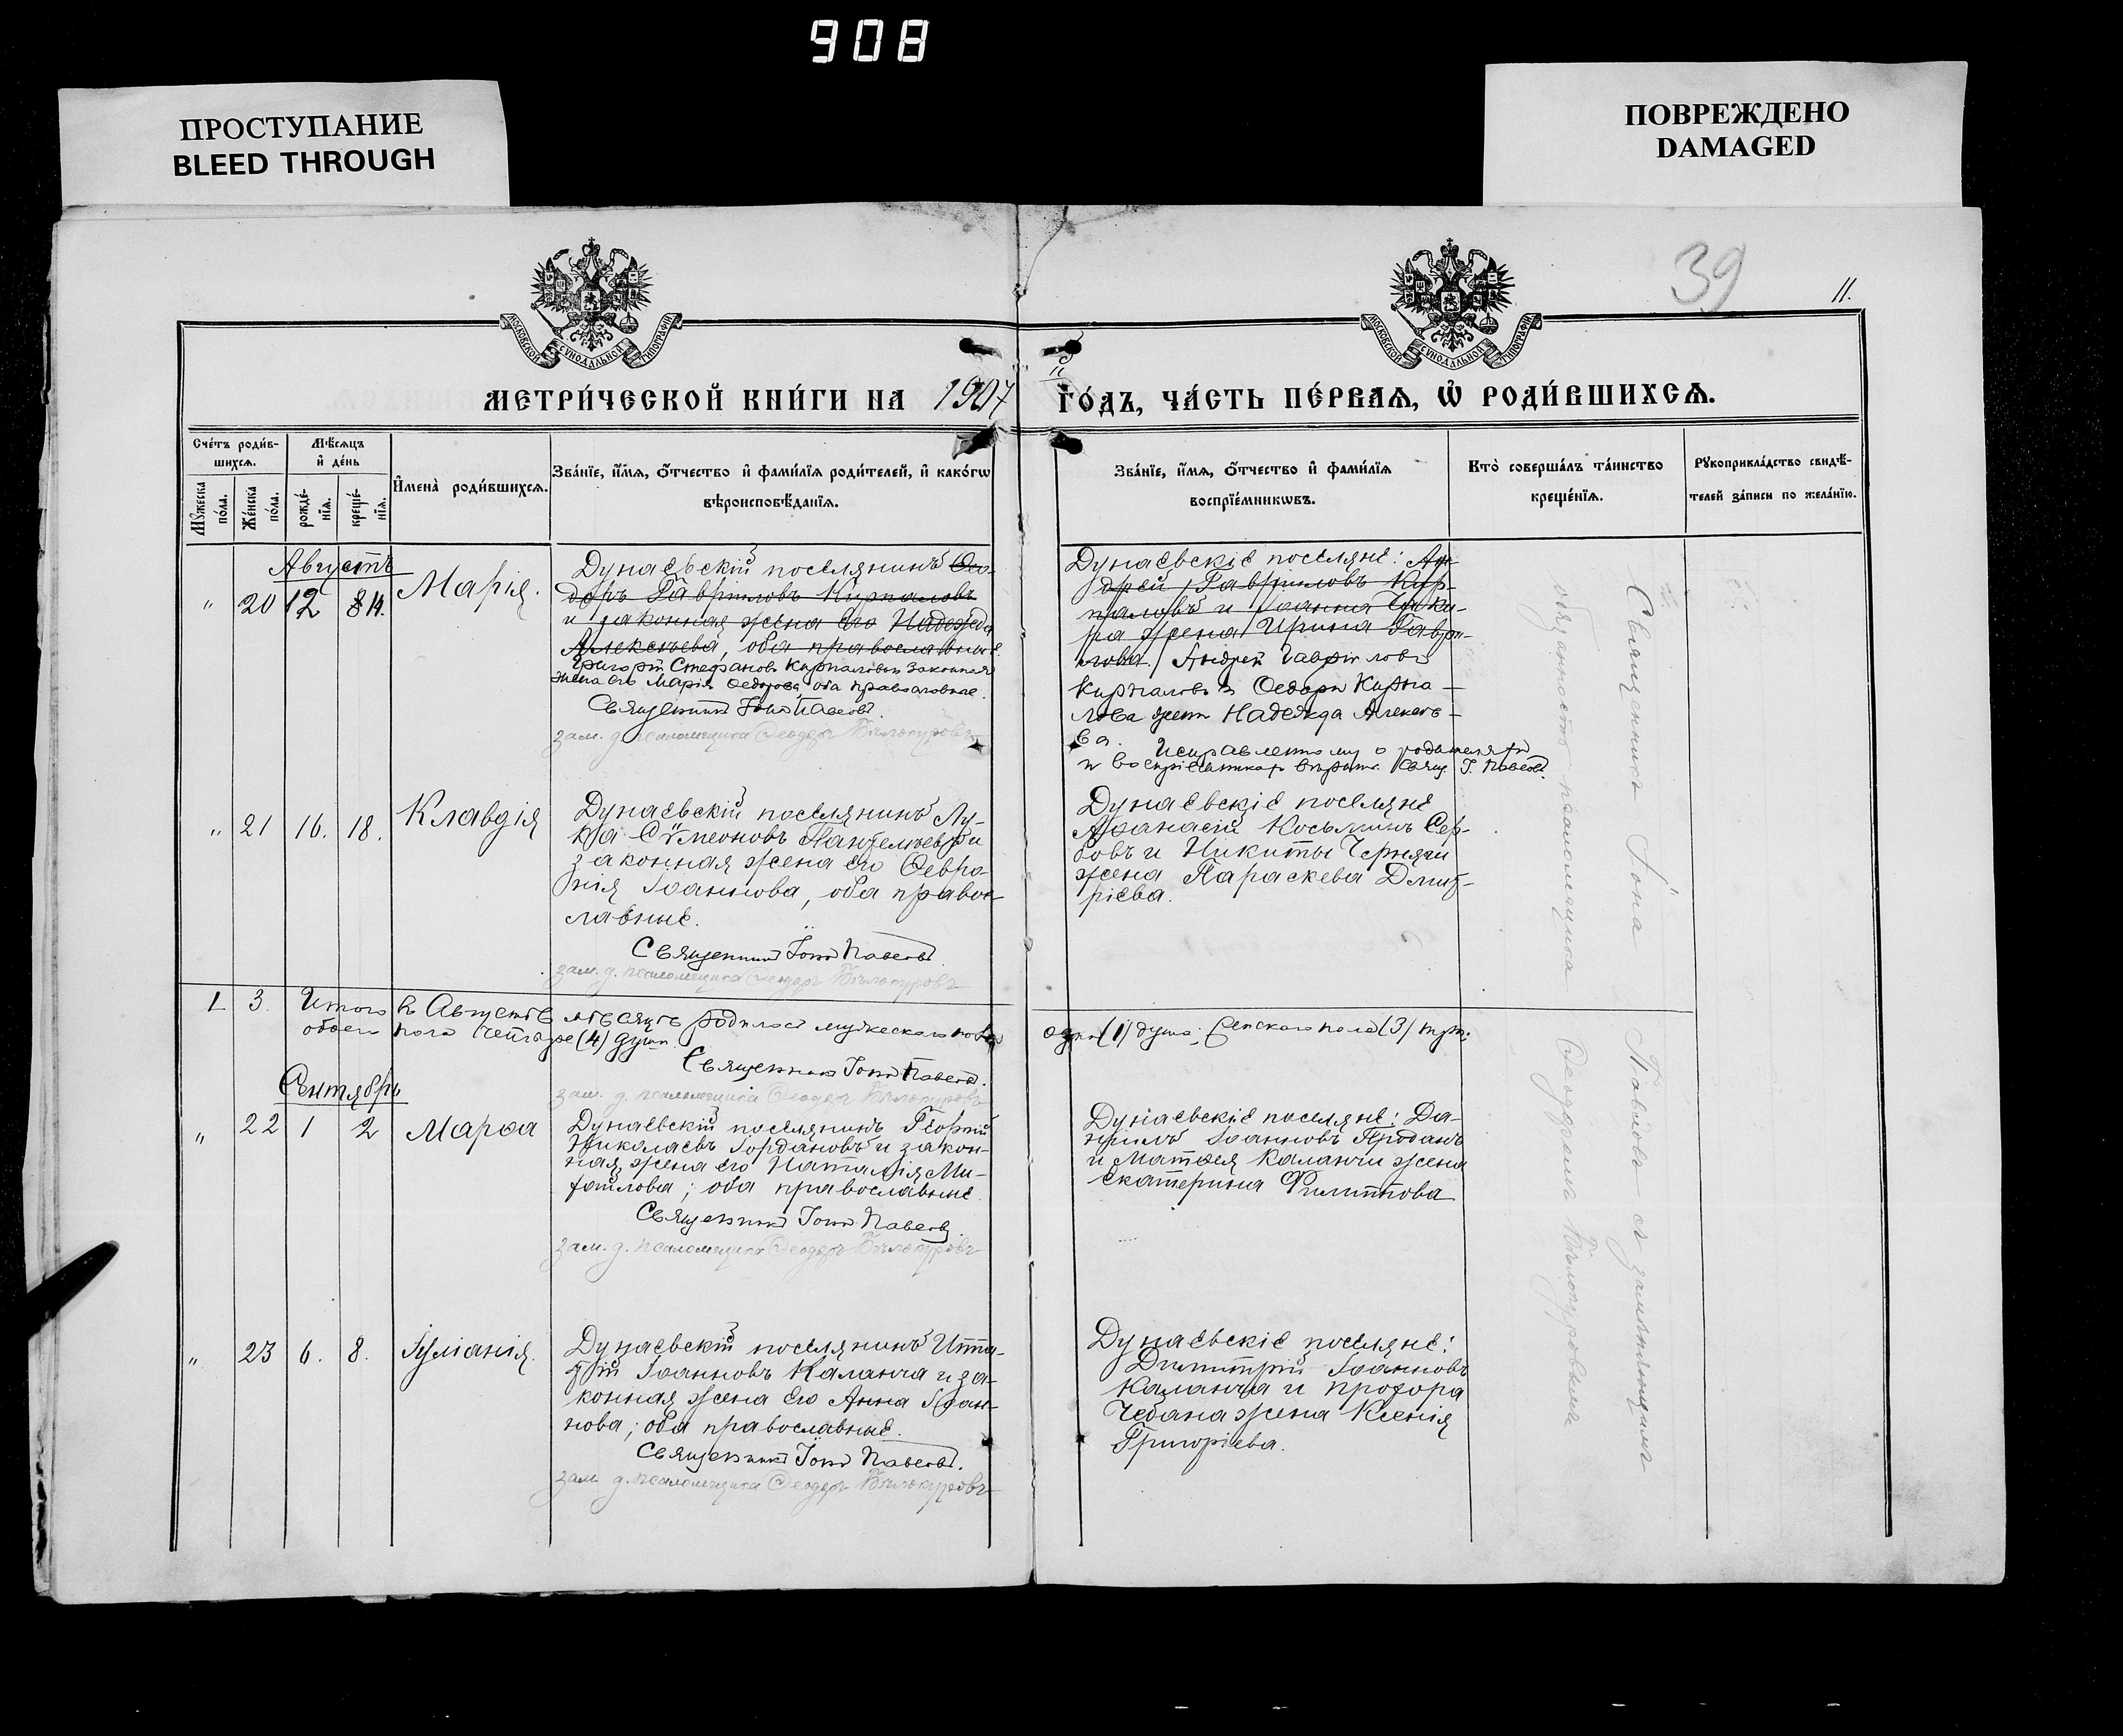 908
ПРОСТУПАНИЕ
BLEED THROUGH
ПОВРЕЖДЕНО
DAMAGED
39
11.
МОСКОВСКОЙ СѴНОДАЛЬНОЙ ТИПОГРАФІИ
МОСКОВСКОЙ СѴНОДАЛЬНОЙ ТИПОГРАФІИ
МЕТРИ́ЧЕСКОЙ КНИ́ГИ НА 1907 ГО́ДЪ, ЧА́СТЬ ПЕ́РВАѦ, Ѡ҆ РОДИ́ВШИХСѦ.
Сче́тъ роди́в-
шихсѧ.
Мꙋжеска по́ла.
Же́нска по́ла.
Мѣ́сѧцъ
и҆ де́нь
рожде́-
нїѧ.
креще́-
нїѧ.
И҆мена̀ роди́вшихсѧ.
Зва́нїе, и҆́мѧ, о҆́тчество и҆ фами́лїѧ роди́телей, и҆ како́гѡ
вѣроисповѣ́данїѧ.
Зва́нїе, и҆́мѧ, о҆́тчество и҆ фами́лїѧ
воспрїе́мникѡвъ.
Кто̀ соверша́лъ та́инство
креще́нїѧ.
Рꙋкоприкла́дство свидѣ́-
телей за́писи по жела́нїю.
Августъ
" 20 12 14. Марія.
Дунаевскій поселянинъ Ѳео-
доръ Гавріиловъ Кирпаловъ
и законная жена его Надежда
Алексѣева, оба православные
Григорій Стефановъ Кирпаловъ законная
жена его Марія Ѳедорова, оба православные.
Священникъ Іона Павловъ.
зам. д. псаломщика Ѳеодоръ Бѣлокуровъ
Дунаевскіе поселяне: Ан-
дрей Гавріиловъ Кир-
паловъ и Іоанна
жена Ирина Гаври-
лова. Андрей Гавріиловъ
Кирпаловъ и Ѳедора Кирпа-
лова жена Надежда Алексѣ-
ва. Исправленному о родителяхъ
и воспріемникахъ вѣрить. Свящ. І. Павловъ.
" 21 16. 18. Клавдія
Дунаевскій поселянинъ Лу-
ка Сѵмеоновъ Пантелѣевъ и
законная жена его Ѳевро-
нія Іоаннова, оба правос-
лавные.
Священникъ Іона Павловъ.
зам. д. псаломщика Ѳеодоръ Бѣлокуровъ
Дунаевскіе поселяне
Аѳанасій Косьминъ Сер-
бовъ и Никиты Чернячи
жена Параскева Дмит-
ріева.
1 3. Итого въ Августѣ мѣсяцѣ родилось мужескаго пола одна (1) душа; женскаго пола (3) три;
обоего пола четыре (4) душъ.
Священникъ Іона Павловъ.
зам. д. псаломщика Ѳеодоръ Бѣлокуровъ
Сентябрь
" 22 1 2 Марѳа
Дунаевскій поселянинъ Георгій
Николаевъ Іордановъ и закон-
ная жена его Наталія Ми-
хаилова; оба православные.
Священникъ Іона Павловъ.
зам. д. псаломщика Ѳеодоръ Бѣлокуровъ
Дунаевскіе поселяне: Да-
ніилъ Іоанновъ Проданъ
и Матѳея Каланчи жена
Екатерина Филиппова
" 23 6. 8. Іуліанія.
Дунаевскій поселянинъ Ипа-
тій Іоанновъ Каланча и за-
конная жена его Анна Іоан-
нова; оба православные.
Священникъ Іона Павловъ.
зам. д. псаломщика Ѳеодоръ Бѣлокуровъ
Дунаевскіе поселяне:
Димитрій Іоанновъ
Каланча и Прохора
Чебана жена Ксенія
Григоріева.
Священникъ Іона Павловъ съ замѣняющимъ
обязанность псаломщика Ѳеодоромъ Бѣлокуровымъ